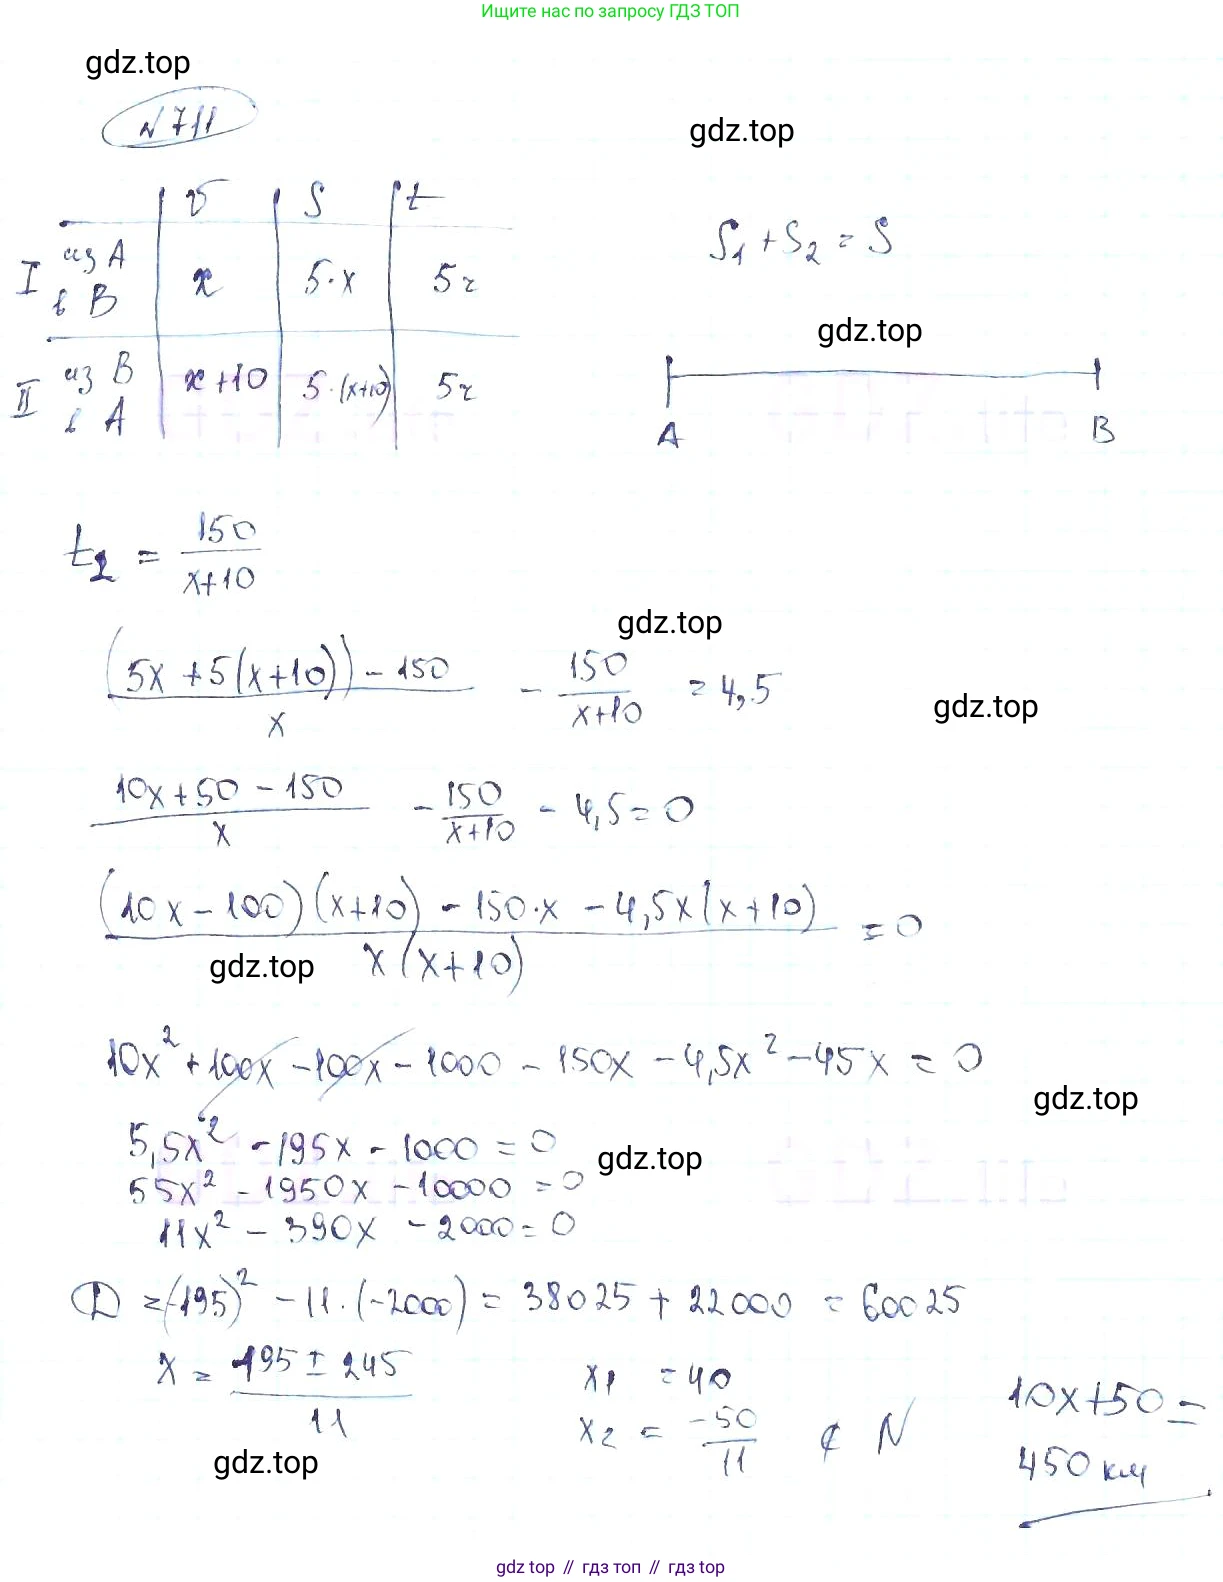 Ищите нас по запросу ГДЗ ТОП
gdz.top
№711
gdz.top
v S t
I из A в B x 5·x 5ч
II из B в A x+10 5·(x+10) 5ч
S₁+S₂=S
gdz.top
A B
t₂ = 150/(x+10)
gdz.top
((5x+5(x+10))-150)/x - 150/(x+10) = 4,5
gdz.top
(10x+50-150)/x - 150/(x+10) - 4,5=0
((10x-100)(x+10)-150·x-4,5x(x+10))/(x(x+10)) =0
gdz.top
10x²+100x-100x-1000-150x-4,5x²-45x=0
gdz.top
5,5x²-195x-1000=0
gdz.top
55x²-1950x-10000=0
11x²-390x-2000=0
D=(-195)²-11·(-2000)=38025+22000=60025
x=(195±245)/11
x₁=40
x₂=-50/11 ∉ N
10x+50=
450 км
gdz.top
gdz top // гдз топ // gdz top